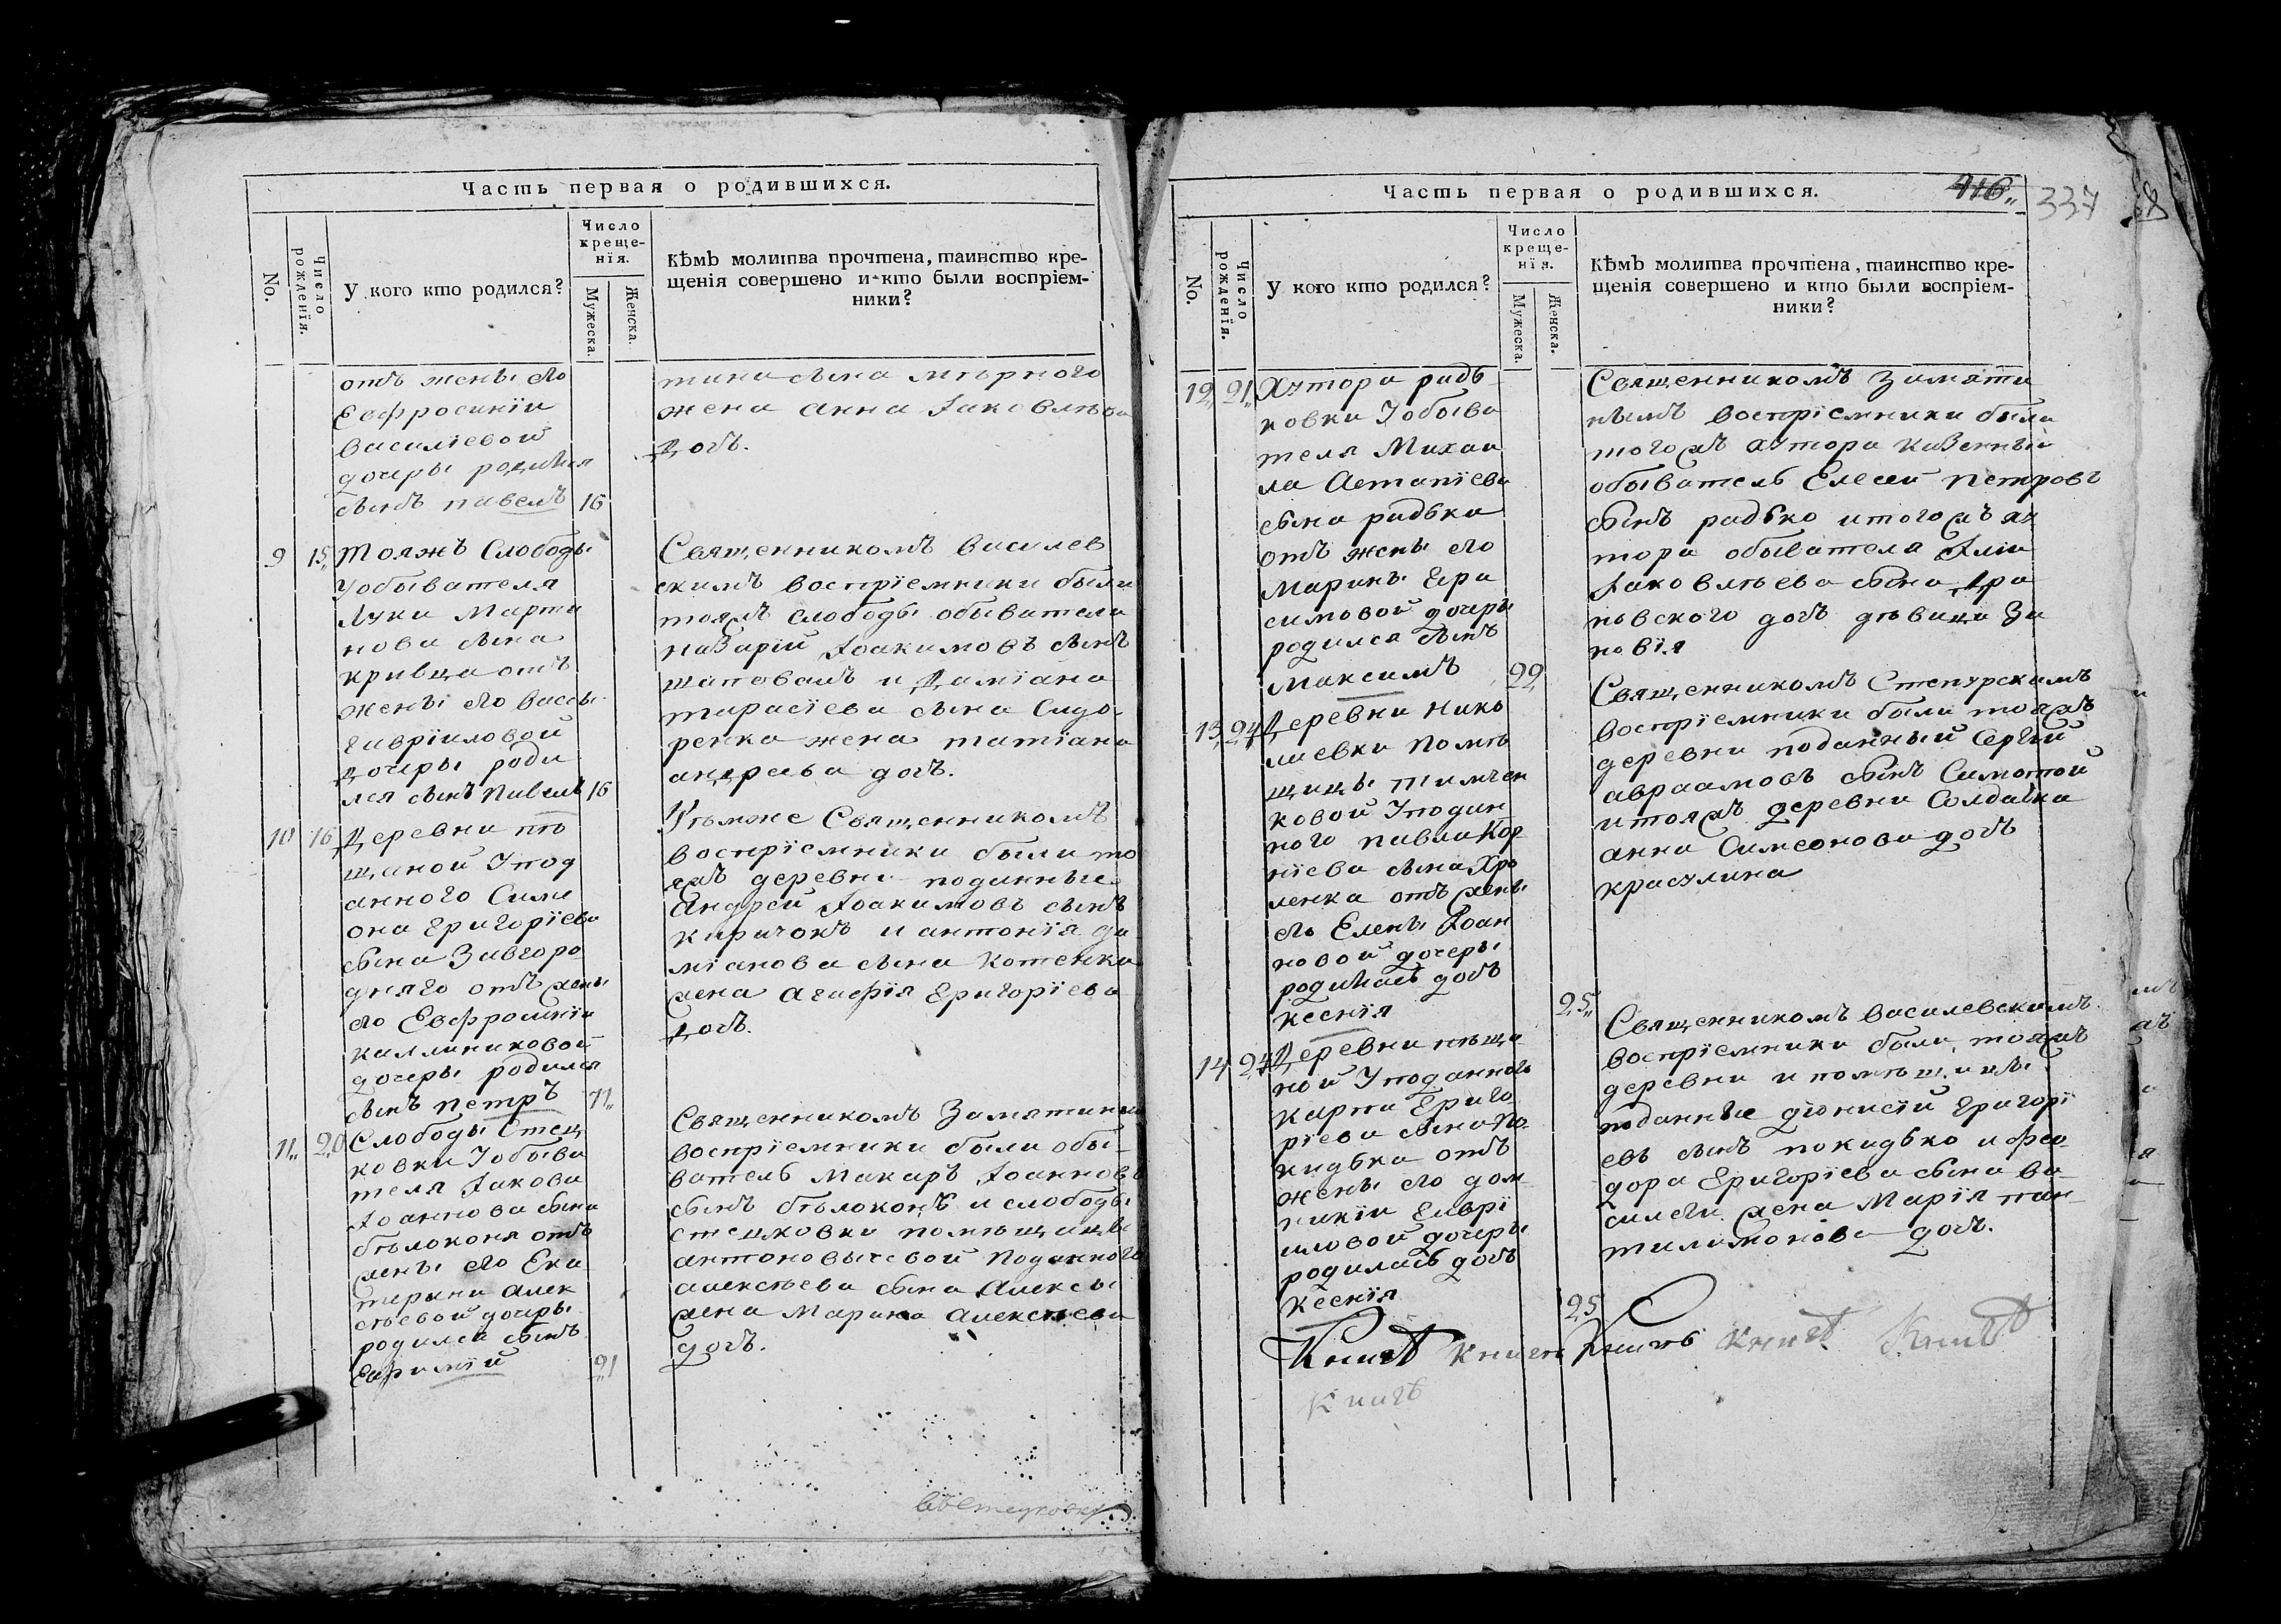 Часть первая о родившихся.
No.
Число рожденїя.
У кого кто родился?
Число креще-нїя.
Мужеска.
Женска.
Кѣмъ молитва прочтена, таинство кре-
щенія совершено и кто были воспріем-
ники?
отъ жены его
Евфросинїи
василїевой
дочеры родился
сынъ павелъ 16
тина сына мѣрного
жена анна Іаковлѣва
дочъ.
9 15 Тояжъ Слободы
Уобывателя
Луки Марти
нова сына
кривца отъ
жены его вассы
гаврїиловой
дочеры роди
лся сынъ Павелъ 16
Священникомъ василев
скимъ воспрїемники были
тояжъ слободы обыватели
назарїй Іоакимовъ сынъ
шаповалъ и Дамїана
тарасїева сына Сидо-
ренка жена татїана
андреева дочъ.
10 16 Деревни пѣ
щаной Упод
анного Симе
она Григорїева
сына Завгоро
дняго отъ жены
его Евфросинїи
каллиниковой
дочеры родился
сынъ петръ 17
Тѣмже Священникомъ
воспрїемники были то
яжъ деревни поданные
Андрей Іоакимовъ сынъ
киричокъ и антонїя да
мїанова сына Котенка
жена Агафїя Григорїева
дочъ.
11 20 Слободы Стец
ковки Уобыва
теля Іакова
Іоаннова сына
бѣлоконя отъ
жены его Ека
терини алек
сѣевой дочеры
родился сынъ
Ефимїй 21
Священникомъ Замятиним
воспрїемники были обы-
ватель Макаръ Іоанновъ
сынъ бѣлоконъ и слободы
стецковки помѣщицы
антоновичевой поданного
алексѣева сына Алексы
жена Марина алексѣева
дочъ.
въ Стецковку
Часть первая о родившихся.
416
337
No.
Число рожденїя.
У кого кто родился?
Число креще-нїя.
Мужеска.
Женска.
Кѣмъ молитва прочтена, таинство кре-
щенія совершено и кто были воспріем-
ники?
12 21 Хутора радь
ковки Уобыва
теля Михаи
ла Астапїева
сына радька
отъ жены его
Марины Гера
симовой дочеры
родился сынъ
Максимъ 22
Священникомъ Замяти
нымъ воспрїемники были
тогожъ хутора казенный
обыватель Елесей петровъ
сынъ радько итогожъ ху
тора обывателя Іліи
Іаковлѣева сына дра
новского дочъ дѣвица Зи
новїя
13 24 Деревни Нико
лаевки помѣ
щицы тимчен
ковой Уподан
ного павла Кор
нїева сына Хро
ленка отъ жены
его Елены Іоан
новой дочеры
родилась дочъ
Ксенїя 25
Священникомъ Степурскимъ
воспрїемники были тояжъ
деревни поданный Сергїй
авраамовъ сынъ Симотой
итояжъ деревни Солдатка
анна Симеонова дочъ
красулина
14 24 Деревни пѣща
ной Уподанного
карпа Григо
рїева сына по
кидька отъ
жены его дом
никїи Гаврї
иловой дочеры
родилась дочъ
Ксенїя 25
Священникомъ василевскимъ
воспрїемники были тояжъ
деревни и помѣщицы
поданные дїонисїй Григорї
евъ сынъ покидько и фео
дора Григорїева сына ва
силеги жена Марїя пан
тилимонова дочъ.
Книгъ Книги Книгъ Книгъ Книгъ
Книгъ